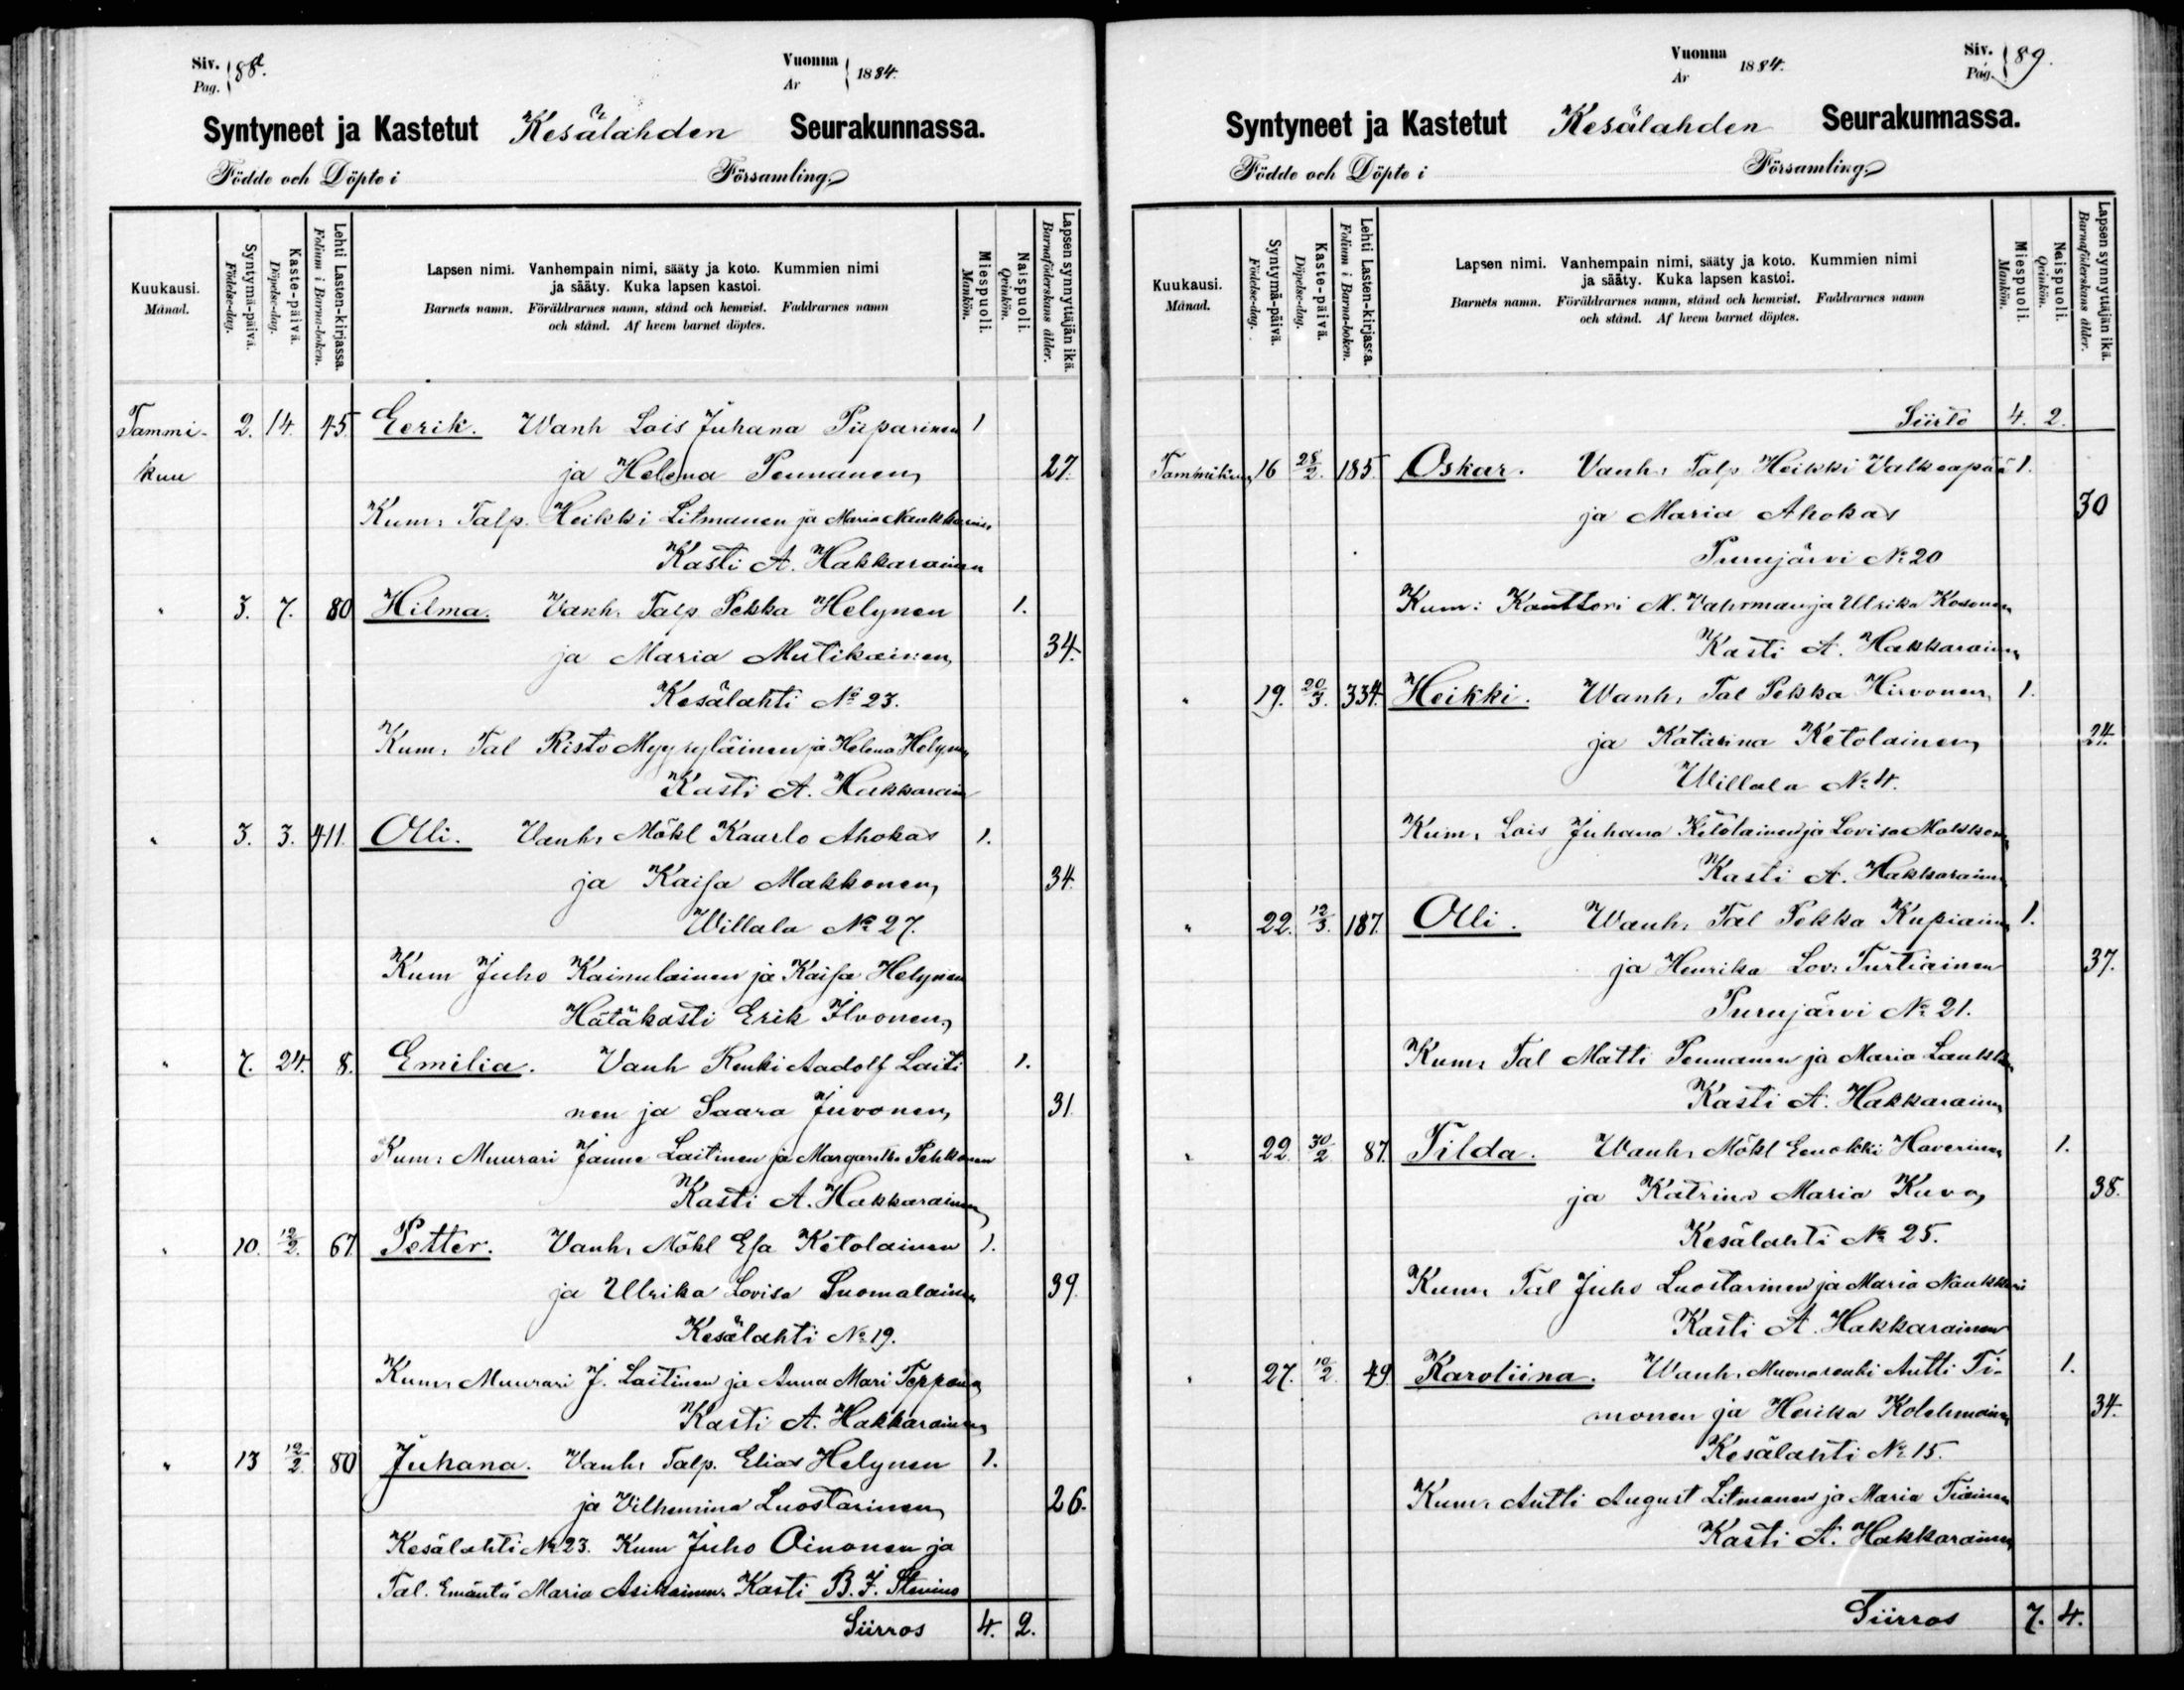 Siv. Pag. 88.
Vuonna År 1884.
Syntyneet ja Kastetut Kesälahden Seurakunnassa.
Födde och Döpte i Församling.
Kuukausi. Månad.
Syntymä-päivä. Födelse-dag.
Kaste-päivä. Döpelse-dag.
Lehti Lasten-kirjassa. Folium i Barna-boken.
Lapsen nimi. Vanhempain nimi, sääty ja koto. Kummien nimi
ja sääty. Kuka lapsen kastoi.
Barnets namn. Föräldrarnes namn, stånd och hemvist. Faddrarnes namn
och stånd. Af hvem barnet döptes.
Miespuoli. Mankön.
Naispuoli. Qvinkön.
Lapsen synnyttäjän ikä. Barnaföderskans ålder.
Tammi- 2. 14. 45. Eerik. Wanh Lois Juhana Piiparinen 1
kuu ja Helena Pennanen 27.
Kum: Talp. Heikki Litmanen ja Maria Naukkarinen
Kasti A. Hakkarainen
" 3. 7. 80 Hilma. Vanh. Talp Pekka Helynen 1.
ja Maria Mutikainen, 34.
Kesälahti No 23.
Kum: Tal Risto Myyryläinen ja Helena Helynen
Kasti A. Hakkarain
" 3. 3. 411. Olli. Vanh: Mökl Kaarlo Ahokas 1.
ja Kaisa Makkonen, 34.
Willala No 27.
Kum Juho Kainulainen ja Kaisa Helynen
Hätäkasti Erik Ilvonen,
" 7. 24. 8. Emilia. Vanh Renki Aadolf Laiti 1.
nen ja Saara Juvonen, 31.
Kum: Muurari Janne Laitinen ja Margareta Pehkonen
Kasti A. Hakkarainen
" 10. 12/2. 67. Petter. Vanh. Mökl Esa Ketolainen 1.
ja Ulrika Lovisa Suomalainen 39.
Kesälahti No 19.
Kum: Muurari J. Laitinen ja Anna Mari
Kasti A. Hakkarainen
" 13 12/2. 80 Juhana. Vanh: Talp. Elias Helynen 1.
ja Vilhemina Luostarinen 26.
Kesälahti No 23. Kum Juho Oinonen ja
Tal. Emäntä Maria Asikainen. Kasti B. J.
Siirros 4. 2.
Vuonna År 1884.
Siv. Pag. 89.
Syntyneet ja Kastetut Kesälahden Seurakunnassa.
Födde och Döpte i Församling.
Kuukausi. Månad.
Syntymä-päivä. Födelse-dag.
Kaste-päivä. Döpelse-dag.
Lehti Lasten-kirjassa. Folium i Barna-boken.
Lapsen nimi. Vanhempain nimi, sääty ja koto. Kummien nimi
ja sääty. Kuka lapsen kastoi.
Barnets namn. Föräldrarnes namn, stånd och hemvist. Faddrarnes namn
och stånd. Af hvem barnet döptes.
Miespuoli. Mankön.
Naispuoli. Qvinkön.
Lapsen synnyttäjän ikä. Barnaföderskans ålder.
Siirto 4. 2.
Tammikuu 16 28/2. 185. Oskar. Vanh: Talp Heikki Valkeapää 1.
ja Maria Ahokas 30
Purujärvi No 20
Kum: Kanttori M. Vahrman ja Ulrika Kosonen
Kasti A. Hakkarainen
" 19. 20/3. 334. Heikki. Wanh: Tal Pekka Hirvonen 1.
ja Katarina Ketolainen, 24.
Willala No 4.
Kum: Lois Juhana Ketolainen ja Lovisa Makkonen
Kasti A. Hakkarainen
" 22. 12/3. 187. Olli. Wanh: Tal Pekka Kupiainen 1.
ja Henrika Lov: Turtiainen 37.
Purujärvi No 21.
Kum: Tal Matti Pennanen ja Maria
Kasti A. Hakkarainen
" 22. 30/2 87. Tilda. Wanh: Mökl Eenokki Haverinen 1.
ja Katrina Maria Kuva, 38.
Kesälahti No 25.
Kum: Tal Juho Luostarinen ja Maria Naukkari
Kasti A. Hakkarainen
" 27. 10/2 49. Karoliina. Wanh: Muonarenki Antti Ti- 1.
monen ja Herika Kolehmainen 34.
Kesälahti No 15.
Kum: Antti August Litmanen ja Maria Tiainen
Kasti A. Hakkarainen
Siirros 7. 4.